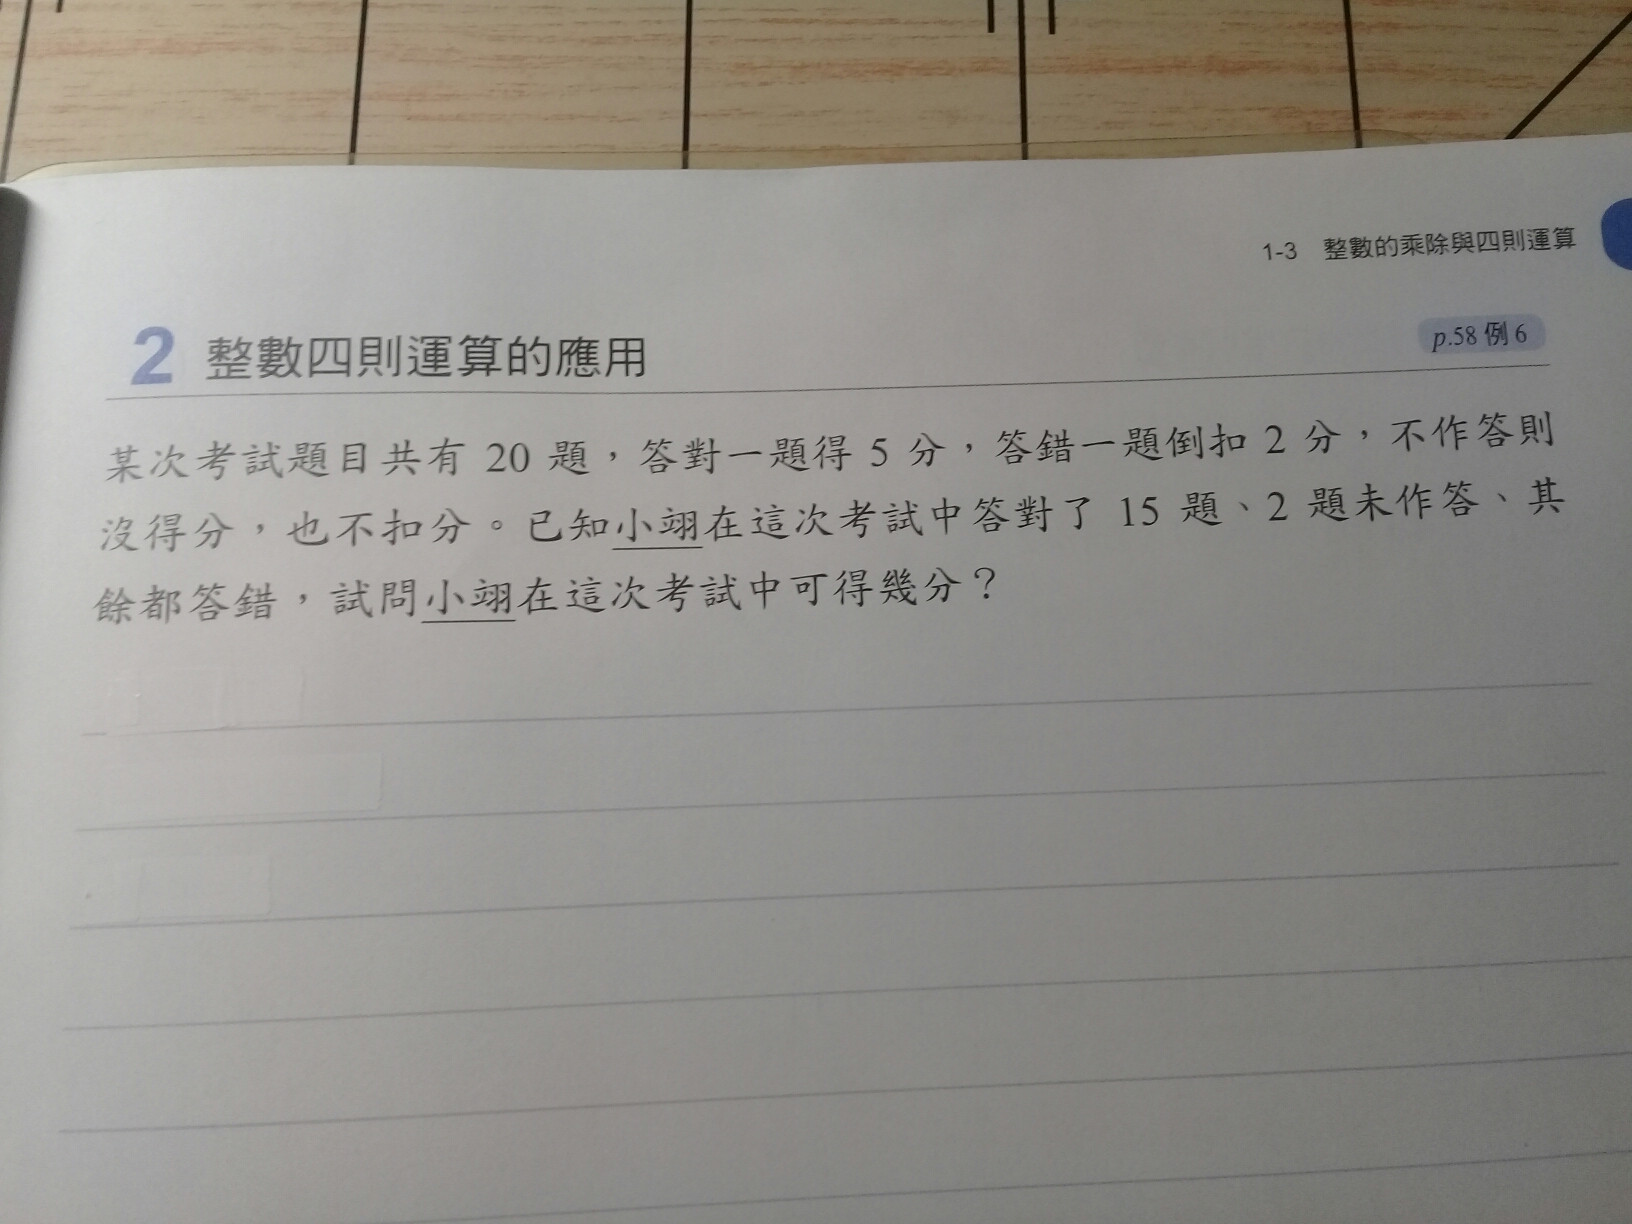 1-3 整數的乘除與四則運算
2 整數四則運算的應用
p.58 例 6
某次考試題目共有 20 題，答對一題得 5 分，答錯一題倒扣 2 分，不作答則
沒得分，也不扣分。已知小翊在這次考試中答對了 15 題、2 題未作答、其
餘都答錯，試問小翊在這次考試中可得幾分？